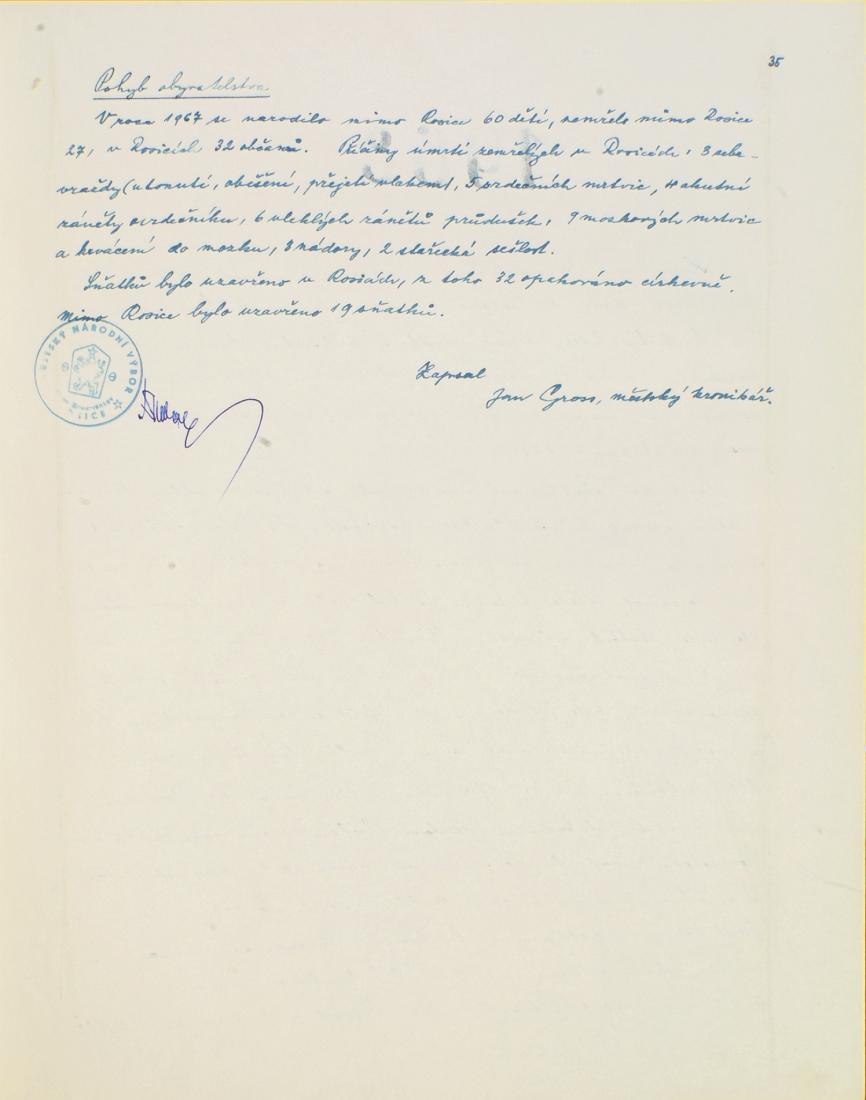 35
Pohyb obyvatelstva.
V roce 1967 se narodilo mimo Rosice 60 dětí, zemřelo mimo Rosice
27, v Rosicích 32 občanů. Příčiny úmrtí zemřelých v Rosicích: 3 sebe-
vraždy (utonutí, oběšení, přejetí vlakem), 5 srdečních mrtvic, 4 akutní
záněty osrdečníku, 6 vleklých zánětů průdušek, 9 mozkových mrtvic
a krvácení do mozku, 3 nádory, 2 stařecká sešlost.
Sňatků bylo uzavřeno v Rosicích, z toho 32 opakováno církevně.
Mimo Rosice bylo uzavřeno 19 sňatků.
NÁRODNÍ VÝBOR
Zapsal
Jan Gross, městský kronikář.